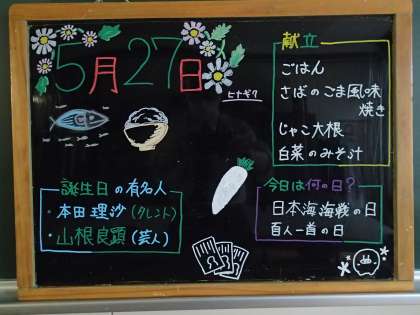 5月27日
ヒナギク
献立
ごはん
さばのごま風味
焼き
じゃこ大根
白菜のみそ汁
誕生日の有名人
・本田理沙(タレント)
・山根良顕(芸人)
今日は何の日？
日本海海戦の日
百人一首の日